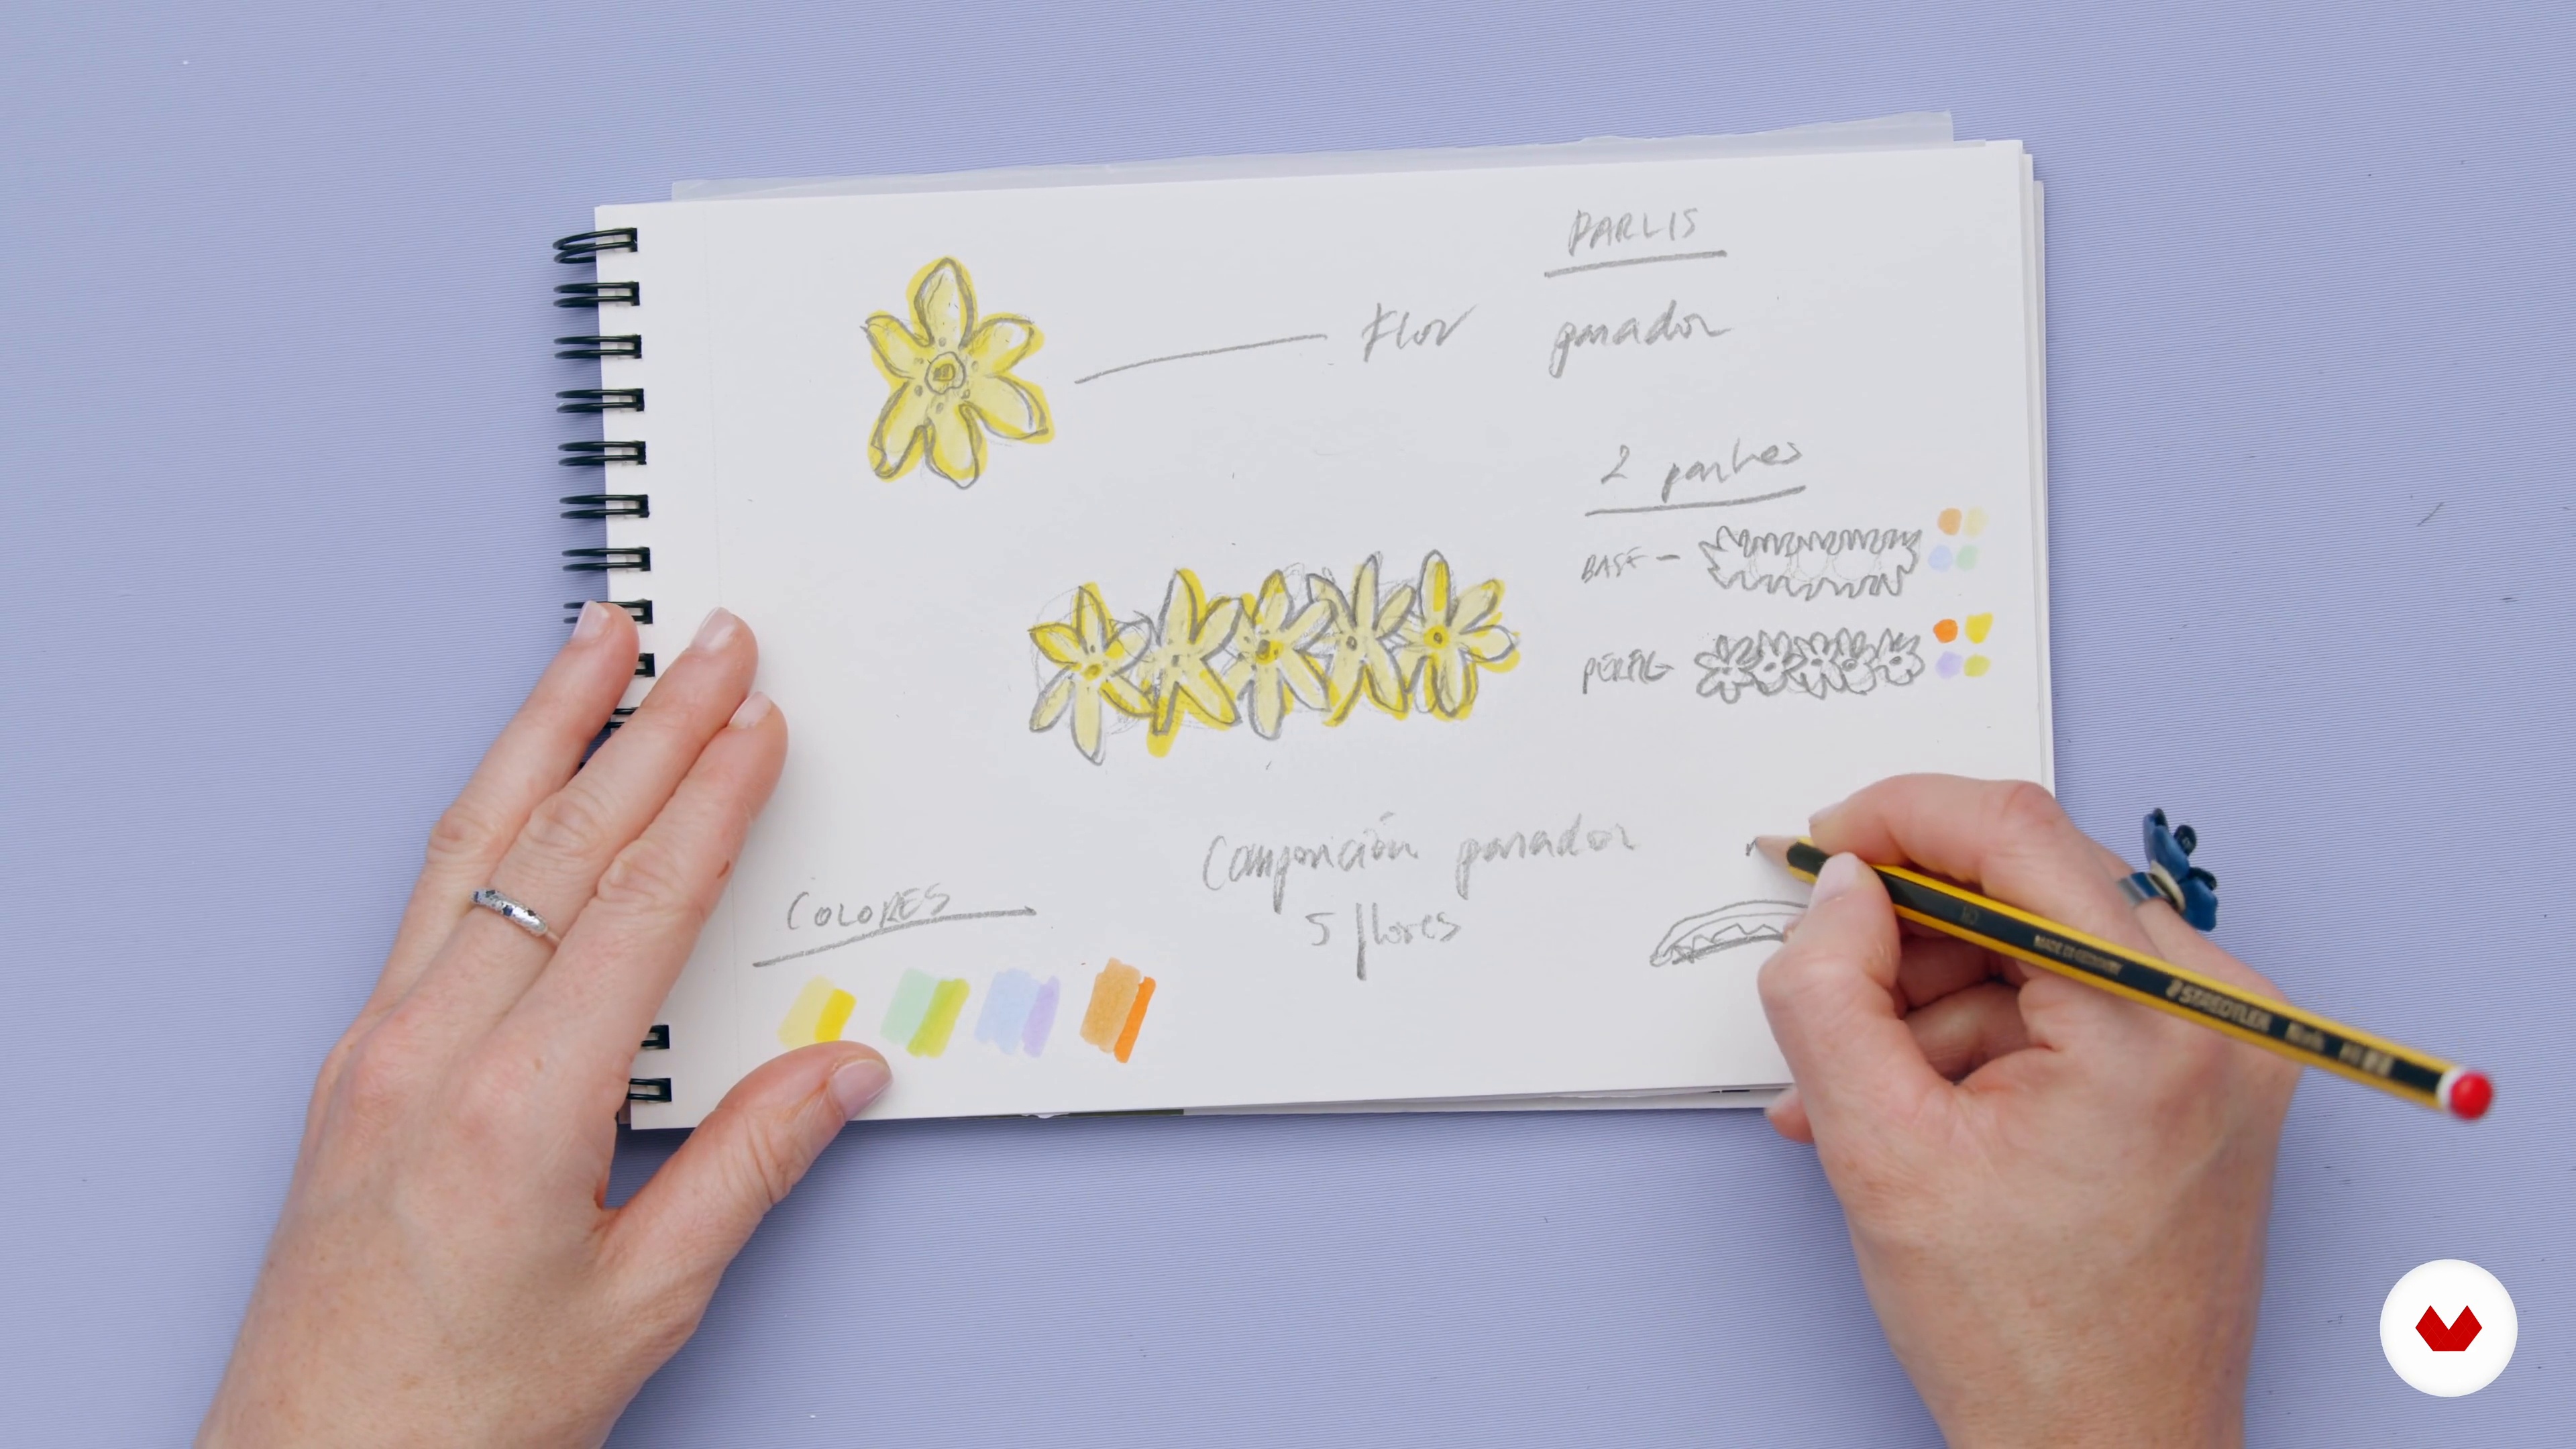 PARLIS
Flor pasador
2 partes
BASE -
PERFIL
Composición pasador
5 flores
COLORES
MADE IN GERMANY
STAEDTLER Noris